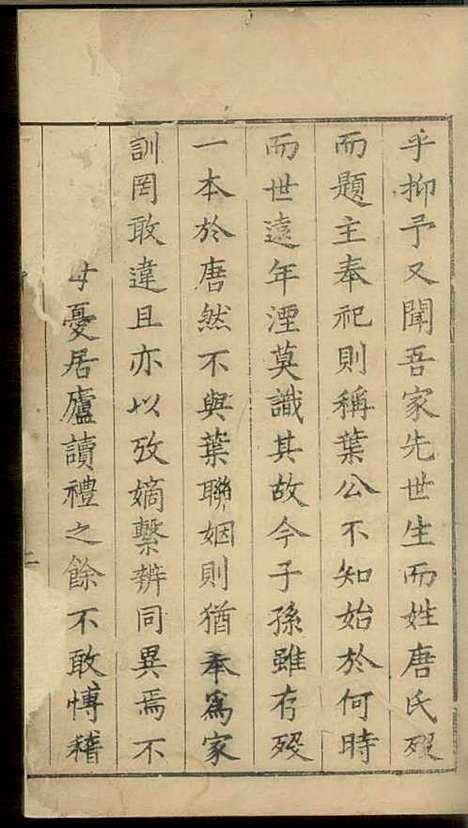 乎抑予又聞吾家先世生而姓唐氏歿
而題主奉祀則稱葉公不知始於何時
而世遠年湮莫識其故今子孫雖存歿
一本於唐然不與葉聯姻則猶本為家
訓罔敢違且亦以攷嫡繫辨同異焉不
母憂居廬讀禮之餘不敢愽稽